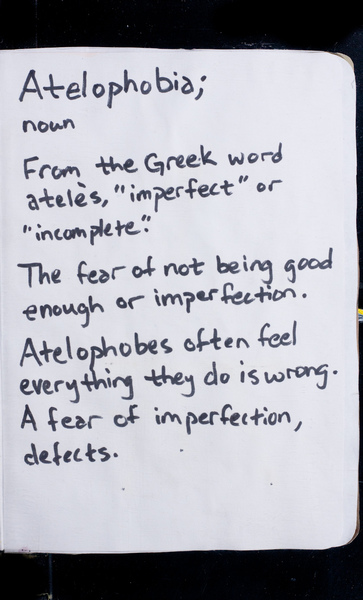 Atelophobia;
noun
From the Greek word
atelès, "imperfect" or
"incomplete".
The fear of not being good
enough or imperfection.
Atelophobes often feel
everything they do is wrong.
A fear of imperfection,
defects.